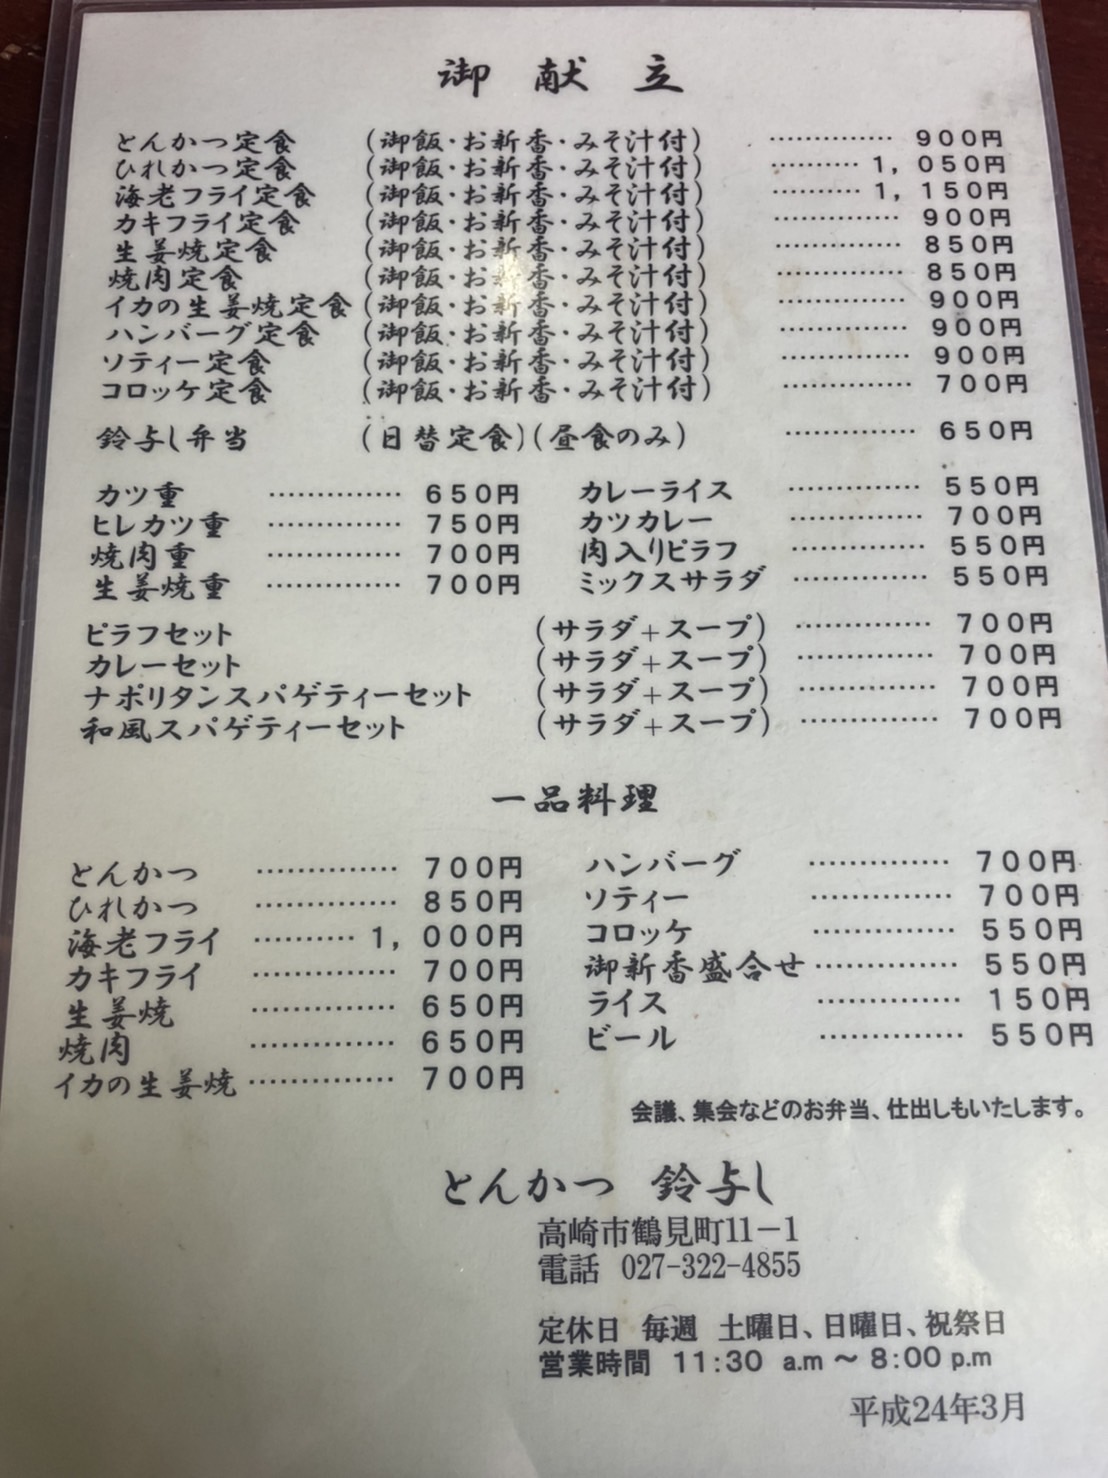 御献立
とんかつ定食 (御飯・お新香・みそ汁付) ………… 900円
ひれかつ定食 (御飯・お新香・みそ汁付) ……… 1,050円
海老フライ定食 (御飯・お新香・みそ汁付) ……… 1,150円
カキフライ定食 (御飯・お新香・みそ汁付) ………… 900円
生姜焼定食 (御飯・お新香・みそ汁付) ………… 850円
焼肉定食 (御飯・お新香・みそ汁付) ………… 850円
イカの生姜焼定食 (御飯・お新香・みそ汁付) ………… 900円
ハンバーグ定食 (御飯・お新香・みそ汁付) ………… 900円
ソティー定食 (御飯・お新香・みそ汁付) ………… 900円
コロッケ定食 (御飯・お新香・みそ汁付) ………… 700円
鈴与し弁当 (日替定食)(昼食のみ) ………… 650円
カツ重 ………… 650円 カレーライス ………… 550円
ヒレカツ重 ………… 750円 カツカレー ………… 700円
焼肉重 ………… 700円 肉入りピラフ ………… 550円
生姜焼重 ………… 700円 ミックスサラダ ………… 550円
ピラフセット (サラダ+スープ) ………… 700円
カレーセット (サラダ+スープ) ………… 700円
ナポリタンスパゲティーセット (サラダ+スープ) ………… 700円
和風スパゲティーセット (サラダ+スープ) ………… 700円
一品料理
とんかつ ………… 700円 ハンバーグ ………… 700円
ひれかつ ………… 850円 ソティー ………… 700円
海老フライ ……… 1,000円 コロッケ ………… 550円
カキフライ ………… 700円 御新香盛合せ ………… 550円
生姜焼 ………… 650円 ライス ………… 150円
焼肉 ………… 650円 ビール ………… 550円
イカの生姜焼 ………… 700円
会議、集会などのお弁当、仕出しもいたします。
とんかつ 鈴与し
高崎市鶴見町11−1
電話 027-322-4855
定休日 毎週 土曜日、日曜日、祝祭日
営業時間 11:30 a.m ~ 8:00 p.m
平成24年3月